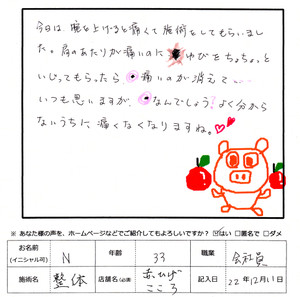 今日は、腕を上げると痛くて施術をしてもらいまし
た。肩のあたりが痛いのに ゆびをちょちょっと
いじってもらったら 痛いのが消えて
いつも思いますが、なんでしょう?よく分から
ないうちに痛くなくなりますね。
※ あなた様の声を、ホームページなどでご紹介してもよろしいですか? ☑はい □匿名で □ダメ
お名前 (イニシャル可) N 年齢 33 職業 会社員
施術名 整体 店舗名(必須) 赤ひげ こころ 記入日 22年12月11日